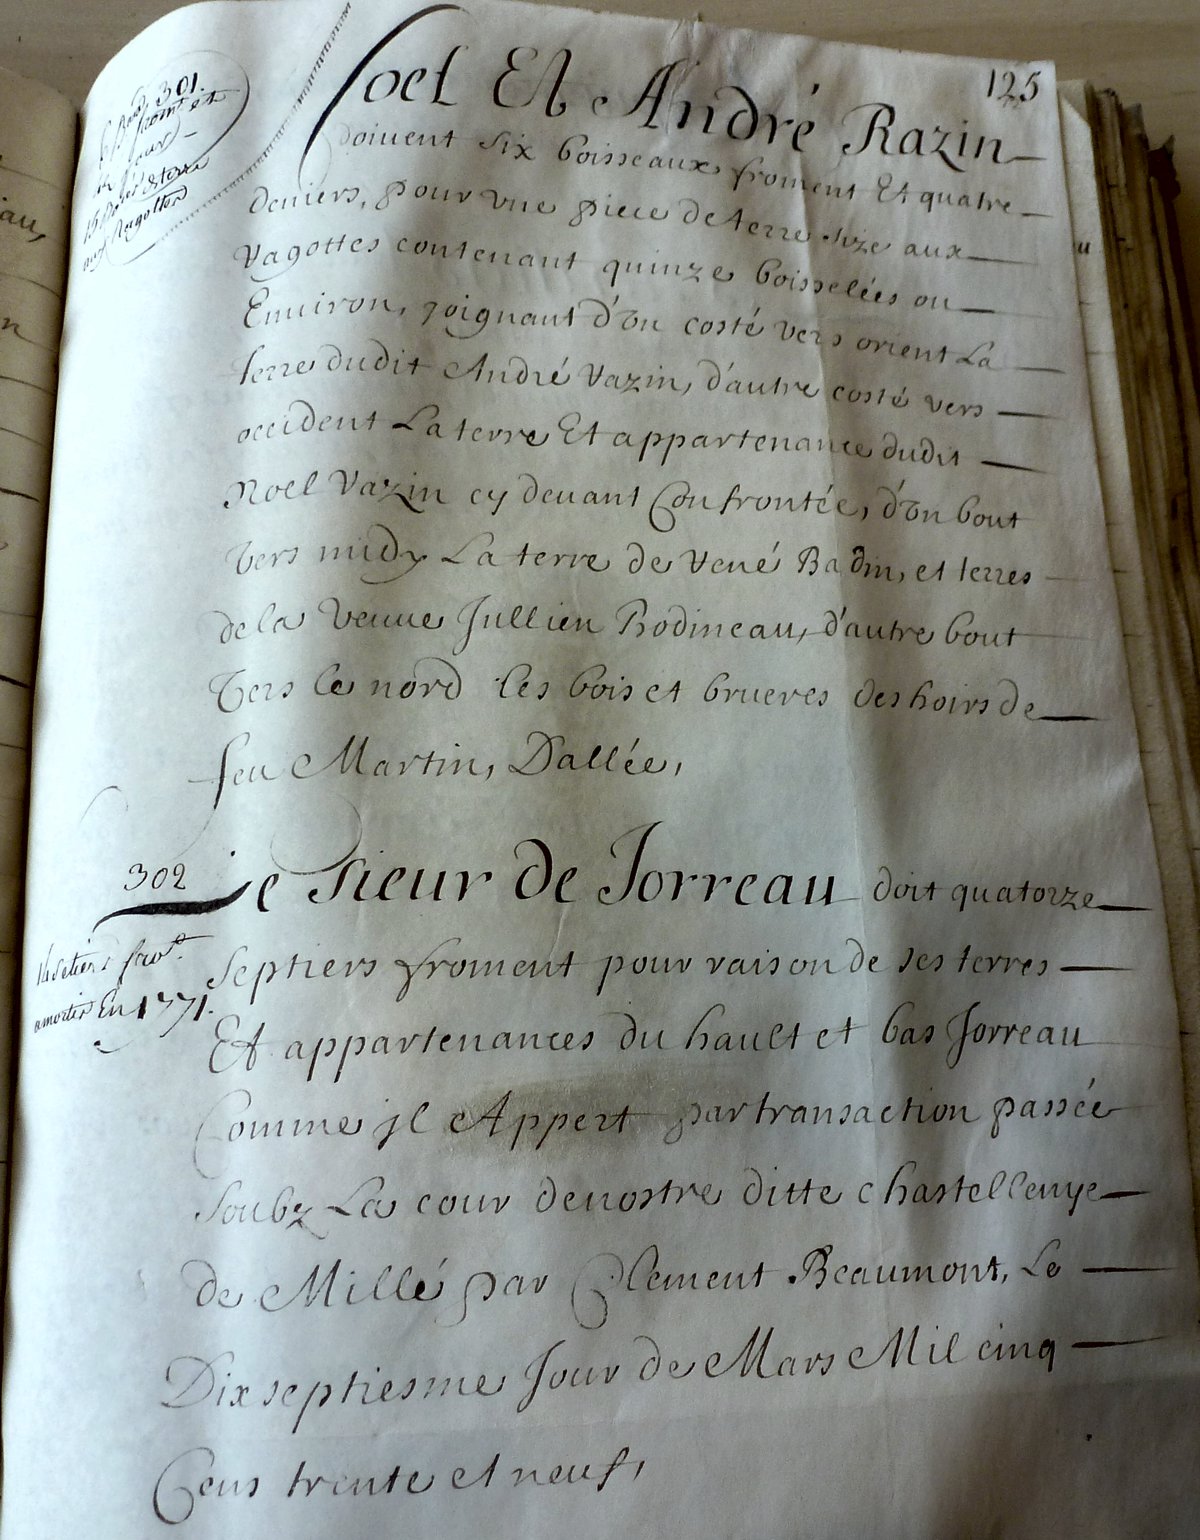 125
301.
Noel Et André Razin
doivent six boisseaux froment Et quatre
deniers, pour vne piece de terre size aux
Ragottes contenant quinze boisselées ou
Enuiron, joignant d'vn costé vers orient La
terre dudit André Razin, d'autre costé vers
occident La terre Et appartenance dudit
Noel Razin cy deuant Confrontée, d'vn bout
vers midy La terre de René Badin, et terres
de la veuue Jullien Rodineau, d'autre bout
vers le nord les bois et brueres des hoirs de
feu Martin, Dallée,
302
Le Sieur de Jorreau doit quatorze
14 setiers fro.t
amortis En 1771.
Septiers froment pour raison de ses terres
Et appartenances du hault et bas Jorreau
Comme jl Appert par transaction passée
Soubz La cour de nostre ditte chastellenye
de Millé par Clement Beaumont, Le
Dix septiesme Jour de Mars Mil cinq
Cens trente et neuf,